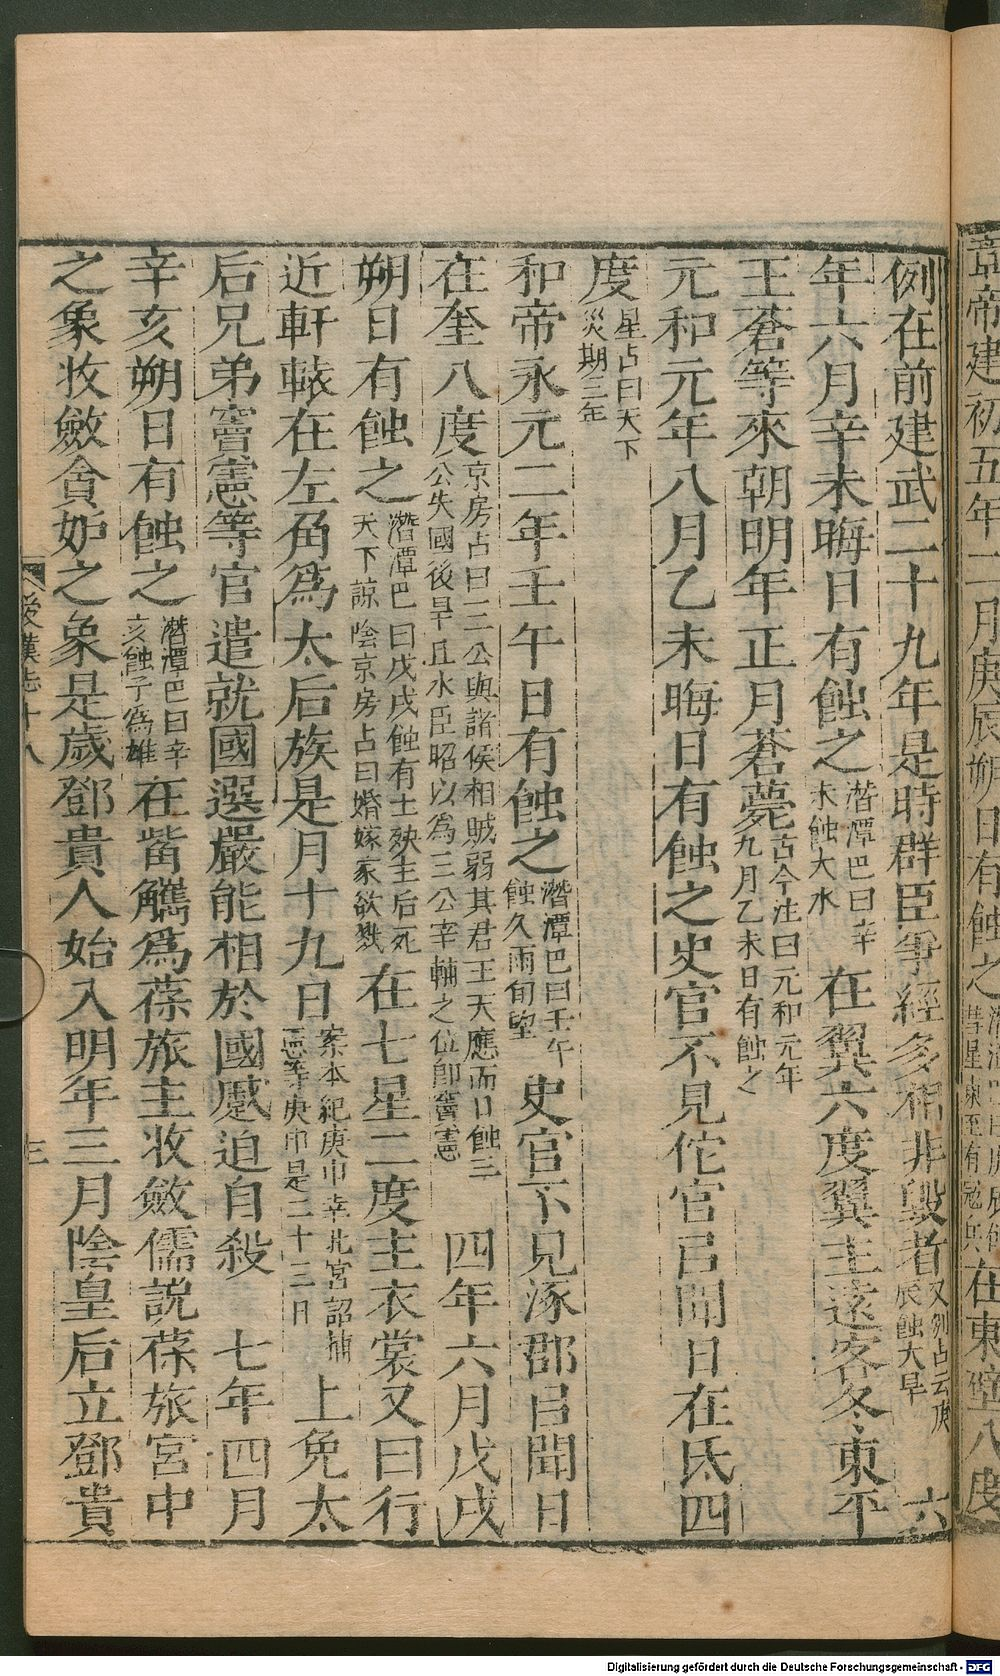 章帝建初五年二月庚辰朔日有蝕之彗星東至有寇兵在東壁八度
例在前建武二十九年是時群臣爭經多相非毀者又別占云庚辰蝕大旱六
年六月辛未晦日有蝕之潛潭巴曰辛未蝕大水在翼六度翼主遠客冬東平
王蒼等來朝明年正月蒼薨古今注曰元和元年九月乙未日有蝕之
元和元年八月乙未晦日有蝕之史官不見佗官㠯聞日在氐四
度星占曰天下災期三年
和帝永元二年壬午日有蝕之潛潭巴曰壬午蝕久雨旬望史官不見涿郡㠯聞日
在奎八度京房占曰三公與諸侯相賊弱其君王天應而日蝕三公失國後旱且水臣昭以為三公宰輔之位即竇憲四年六月戊戌
朔日有蝕之潛潭巴曰戊戌蝕有土殃主后死天下諒陰京房占曰婚嫁家欲戮在七星二度主衣裳又曰行
近軒轅在左角爲太后族是月十九日案本紀庚申幸北宮詔捕憲等庚申是二十三日上免太
后兄弟竇憲等官遣就國選嚴能相於國蹙迫自殺七年四月
辛亥朔日有蝕之潛潭巴曰辛亥蝕子爲雄在觜觿爲葆旅主收斂儒說葆旅宮中
之象收斂貪妒之象是歲鄧貴人始入明年三月陰皇后立鄧貴
後漢志十八
三
Digitalisierung gefördert durch die Deutsche Forschungsgemeinschaft - DFG